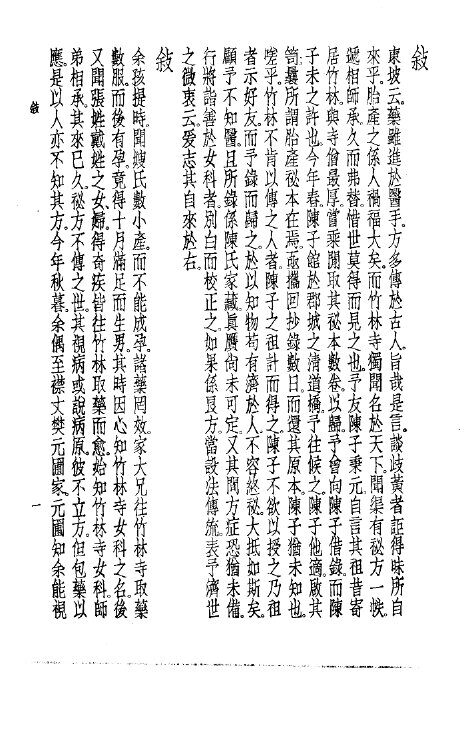 敍
東坡云。藥雖進於醫手。方多傳於古人。旨哉是言。談歧黃者。詎得昧所自
來乎。胎產之係人禍福大矣。而竹林寺獨聞名於天下。聞渠有秘方一帙。
遞相師承。久而弗替。惜世莫得而見之也。予友陳子乘元。自言其祖昔寄
居竹林。與寺僧最厚。嘗乘間取其秘本數卷以歸。予曾向陳子借錄。而陳
子未之許也。今年春。陳子館於郡城之清道橋。予往候之。陳子他適。啟其
笥。曩所謂胎產秘本在焉。亟攜回抄錄數日。而還其原本。陳子猶未知也。
嗟乎。竹林不肯以傳之人者。陳子之祖計而得之。陳子不欲以授之乃祖
者示好友。而予錄而歸之。於以知物苟有濟於人。不容終祕。大抵如斯矣。
顧予不知醫。且所錄係陳氏家藏。真贋尚未可定。又其間方症。恐猶未備。
行將詣善於女科者。別白而校正之。如果係良方。當設法傳流。表予濟世
之微衷云。爰志其自來於右。
敍
余孩提時。聞嫂氏數小產。而不能成孕。諸藥罔效。家大兄往竹林寺取藥
數服。而後有孕。竟得十月滿足而生男。其時因心知竹林寺女科之名。後
又聞張姓戴姓之女婦。得奇疾。皆往竹林取藥而愈。始知竹林寺女科。師
弟相承。其來已久。秘方不傳之世。其視病或說病原。彼不立方。但包藥以
應。是以人亦不知其方。今年秋暮。余偶至襟丈樊元圃家。元圃知余能視
敍
一